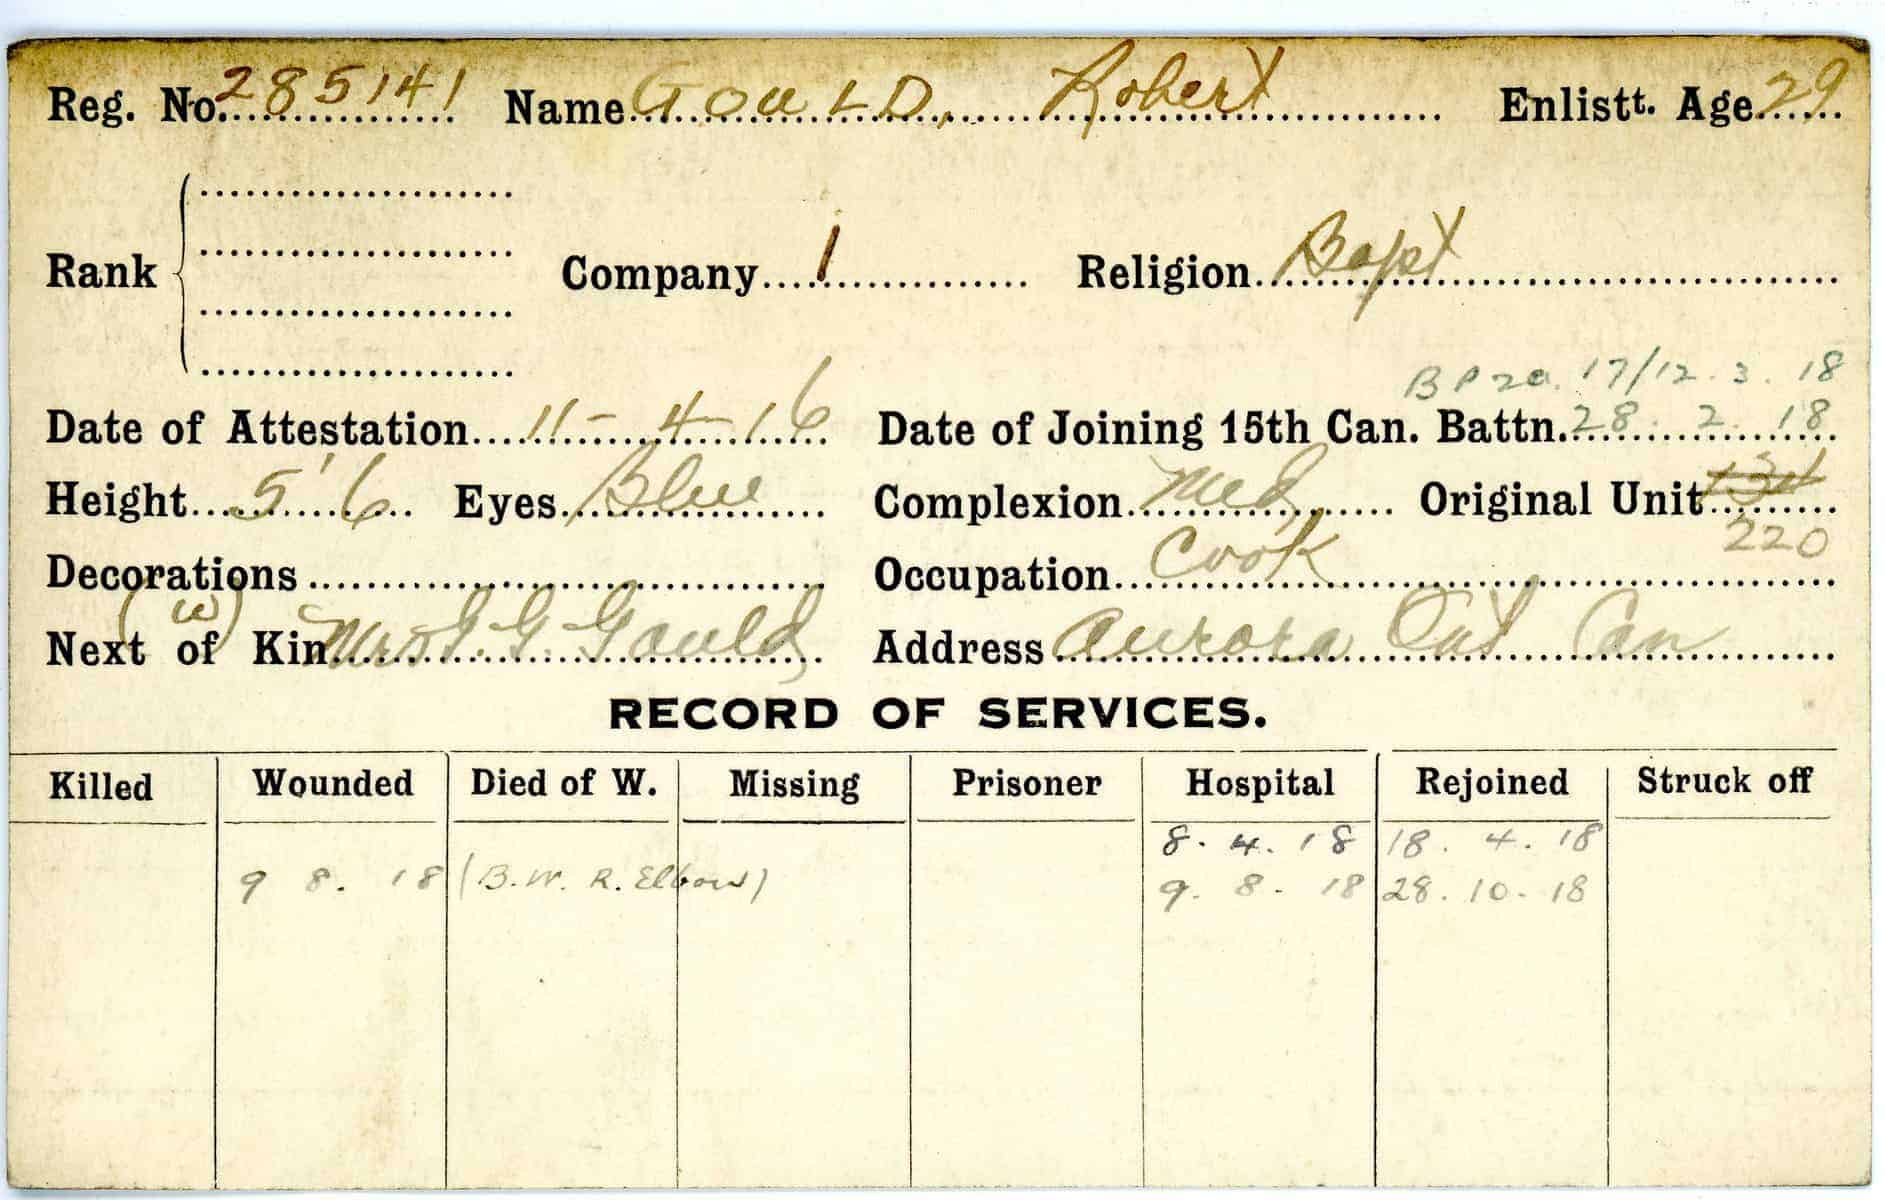 Reg. No. 285141 Name GOULD, Robert Enlistt. Age 29
Rank Company 1 Religion Bapt
17/12. 3. 18
Date of Attestation 11-4-16 Date of Joining 15th Can. Battn. 28. 2. 18
Height 5'6 Eyes Blue Complexion Med, Original Unit 134
220
Decorations Occupation Cook
(w)
Next of Kin Mrs G. Gould Address Aurora Ont Can
RECORD OF SERVICES.
Killed Wounded Died of W. Missing Prisoner Hospital Rejoined Struck off
8. 4. 18 18. 4. 18
9 8. 18 (B.W. R. Elbow) 9. 8. 18 28. 10. 18